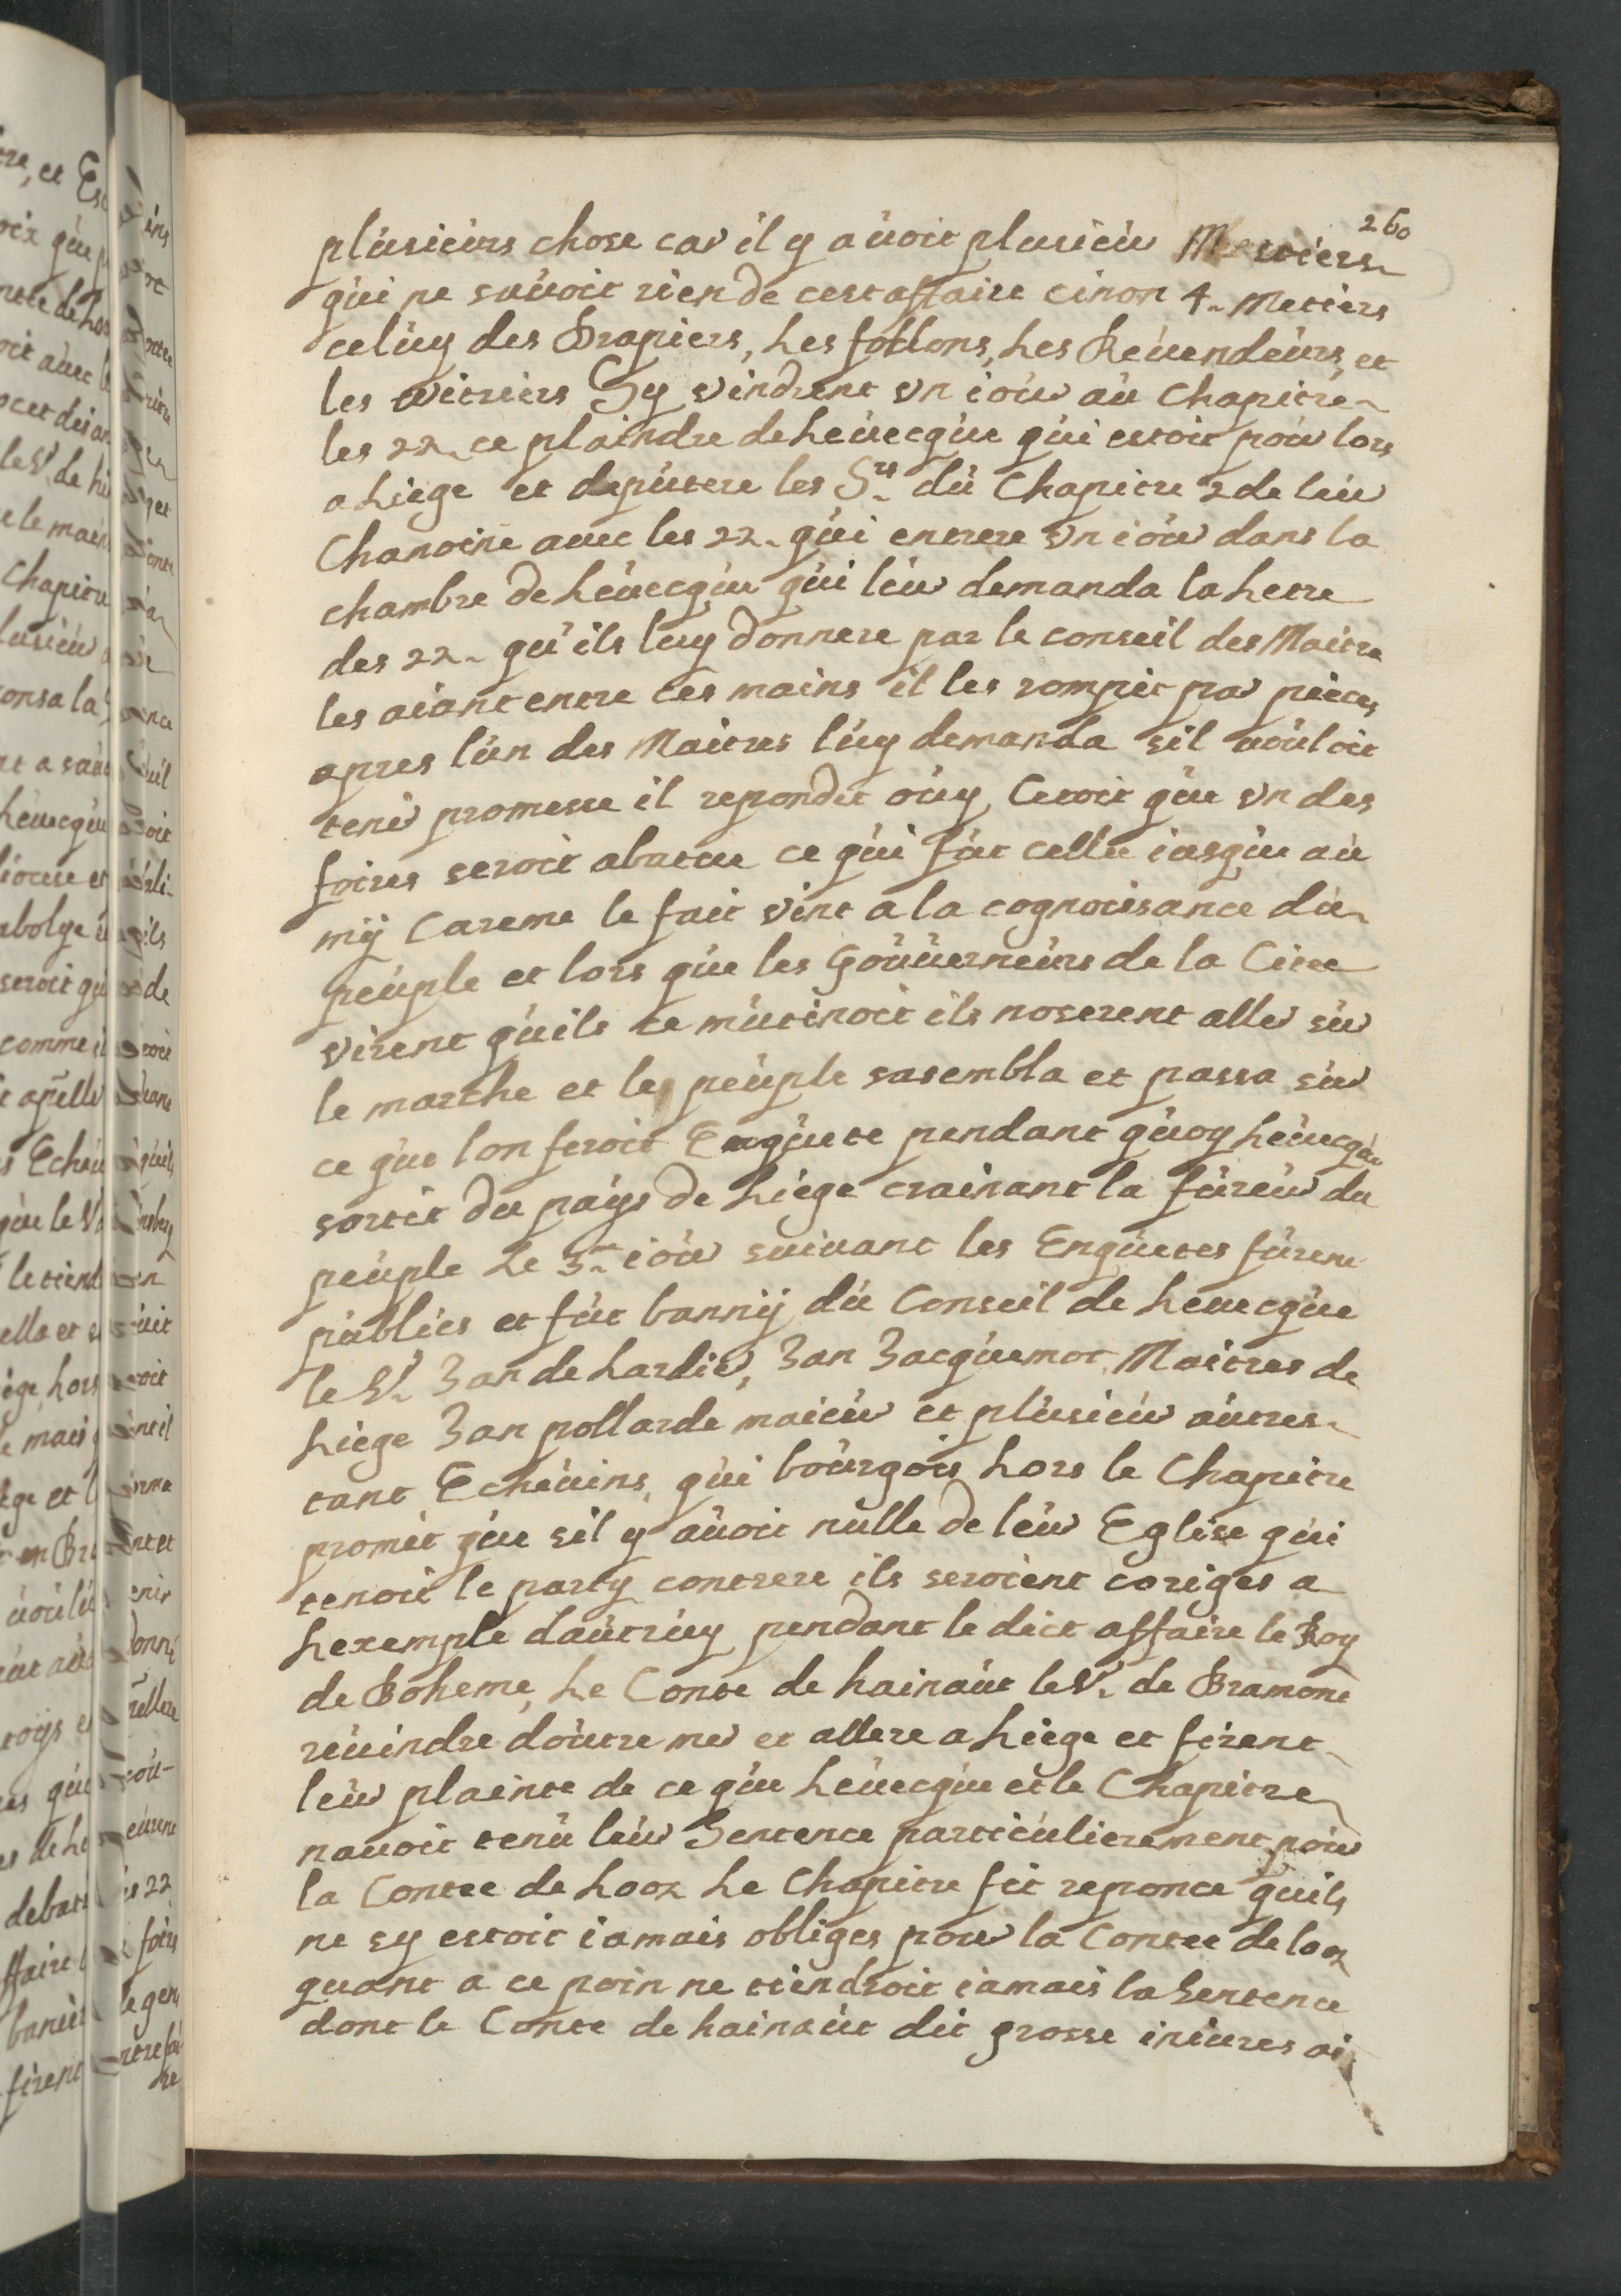 260
plusieurs chose car il y avoit plusieur Mestiers
qui ne savoit rien de cest affaire cinon 4 Metiers
celuy des Drapiers, Les follons, Les Revendeurs, et
les witriers Sy vindrent un iour au Chapitre
les 22 ce plaindre de Levecque qui estoit pour lors
a Liege et deputere les Srs du Chapitre 2 de leur
Chanoine avec les 22 qui entrere un iour dans la
chambre de Levecque qui leur demanda la Letre
des 22 qu'ils luy donnere par le conseil des Maitre
les aiant entre ces mains il les rompit par pieces
apres l'un des Maitres luy demanda sil vouloit
tenir promesse il repondit ouy Cetoit que un des
foires seroit abatue ce qui fut cellé iusque au
mÿ Careme le fait vint a la cognoissance du
peuple et lors que les Gouverneurs de la Citee
virent quils ce mutinoit ils noserent aller sur
le marche et les peuple sasembla et passa sur
ce que lon feroit Enquete pendant quoy Levecque
sortit du pays de Liege crainant la fureur du
peuple Le 3me iour suivant les Enquetes furent
publiés et fut bannÿ du Conseil de Levecque
le Sr Jan de hardir, Jan Jacquemot, Maitres de
Liege Jan pollarde maieur et plusieur autres
tant Echevins, qui bourgois hors le Chapitre
promit que sil y avoit nulle de leur Eglise qui
tenoit le party contrere ils seroient coriges a
Lexemple dautruy pendant le dict affaire le Roy
de Boheme, Le Conte de hainaut le Sr de Bramont
revindre doutre mer et allere a Liege et firent
leur plainte de ce que Levecque et le Chapitre
navoit tenu leur Sentence particulierement pour
la Contee de Looz Le Chapitre fit reponce quils
ne sy estoit iamais obliges pour la Contee de looz
quant a ce poin ne tiendroit iamais la Sentence
dont le Conte de hainaut dit grosse iniures ai